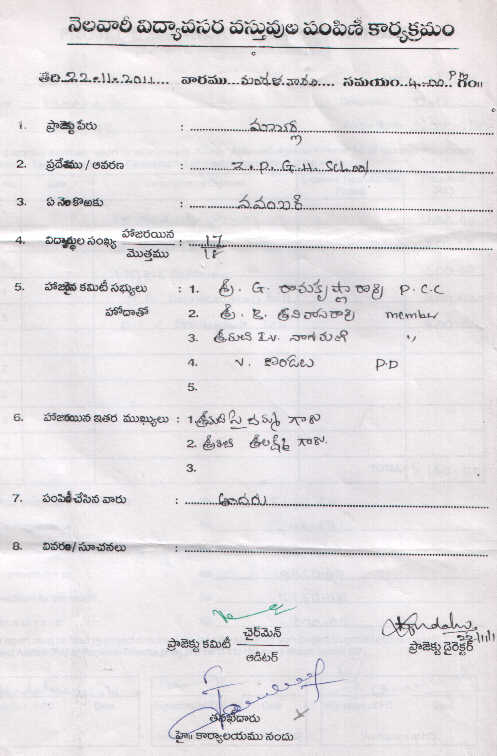 నెలవారీ విద్యావసర వస్తువుల పంపిణీ కార్యక్రమం
తేది.22.11.2011.... వారము..మంగళవారం... సమయం..4.00.PM గం॥
1. ప్రాజెక్టు పేరు :
2. ప్రదేశము / ఆవరణ : Z.P.G.H. School
3. ఏ నెల కొఱకు : నవంబర్
4. విద్యార్థుల సంఖ్య హాజరయిన : 17
మొత్తము 18
5. హాజరైన కమిటీ సభ్యులు : 1. శ్రీ. G. రామకృష్ణా P.C.C
హోదాతో 2. శ్రీ. member
3. శ్రీమతి I.V. నాగమణి ,,
4. V. P.D
5.
6. హాజరయిన ఇతర ముఖ్యులు : 1. శ్రీమతి గారు
2. శ్రీమతి శ్రీలక్ష్మి గారు.
3.
7. పంపిణీ చేసిన వారు : అందరు
8. వివరణ/సూచనలు :
ప్రాజెక్టు కమిటీ చైర్‌మెన్
ఆడిటర్
22/11/11
ప్రాజెక్టు డైరెక్టర్
తనిఖీదారు
హై॥ కార్యాలయము నందు